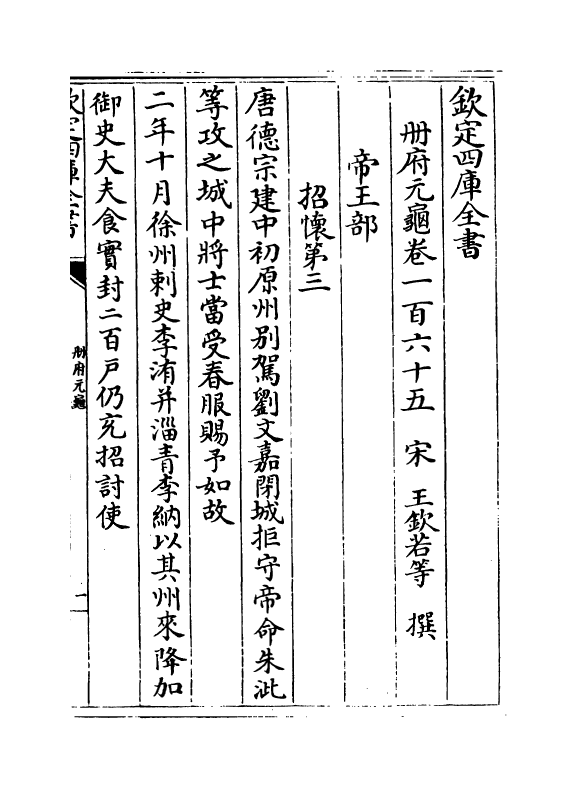 欽定四庫全書
冊府元龜卷一百六十五　宋　王欽若等　撰
帝王部
招懷第三
唐德宗建中初原州别駕劉文嘉閉城拒守帝命朱泚
等攻之城中將士當受春服賜予如故
二年十月徐州刺史李洧并淄青李納以其州來降加
御史大夫食實封二百戶仍充招討使
欽定四庫全書
冊府元龜